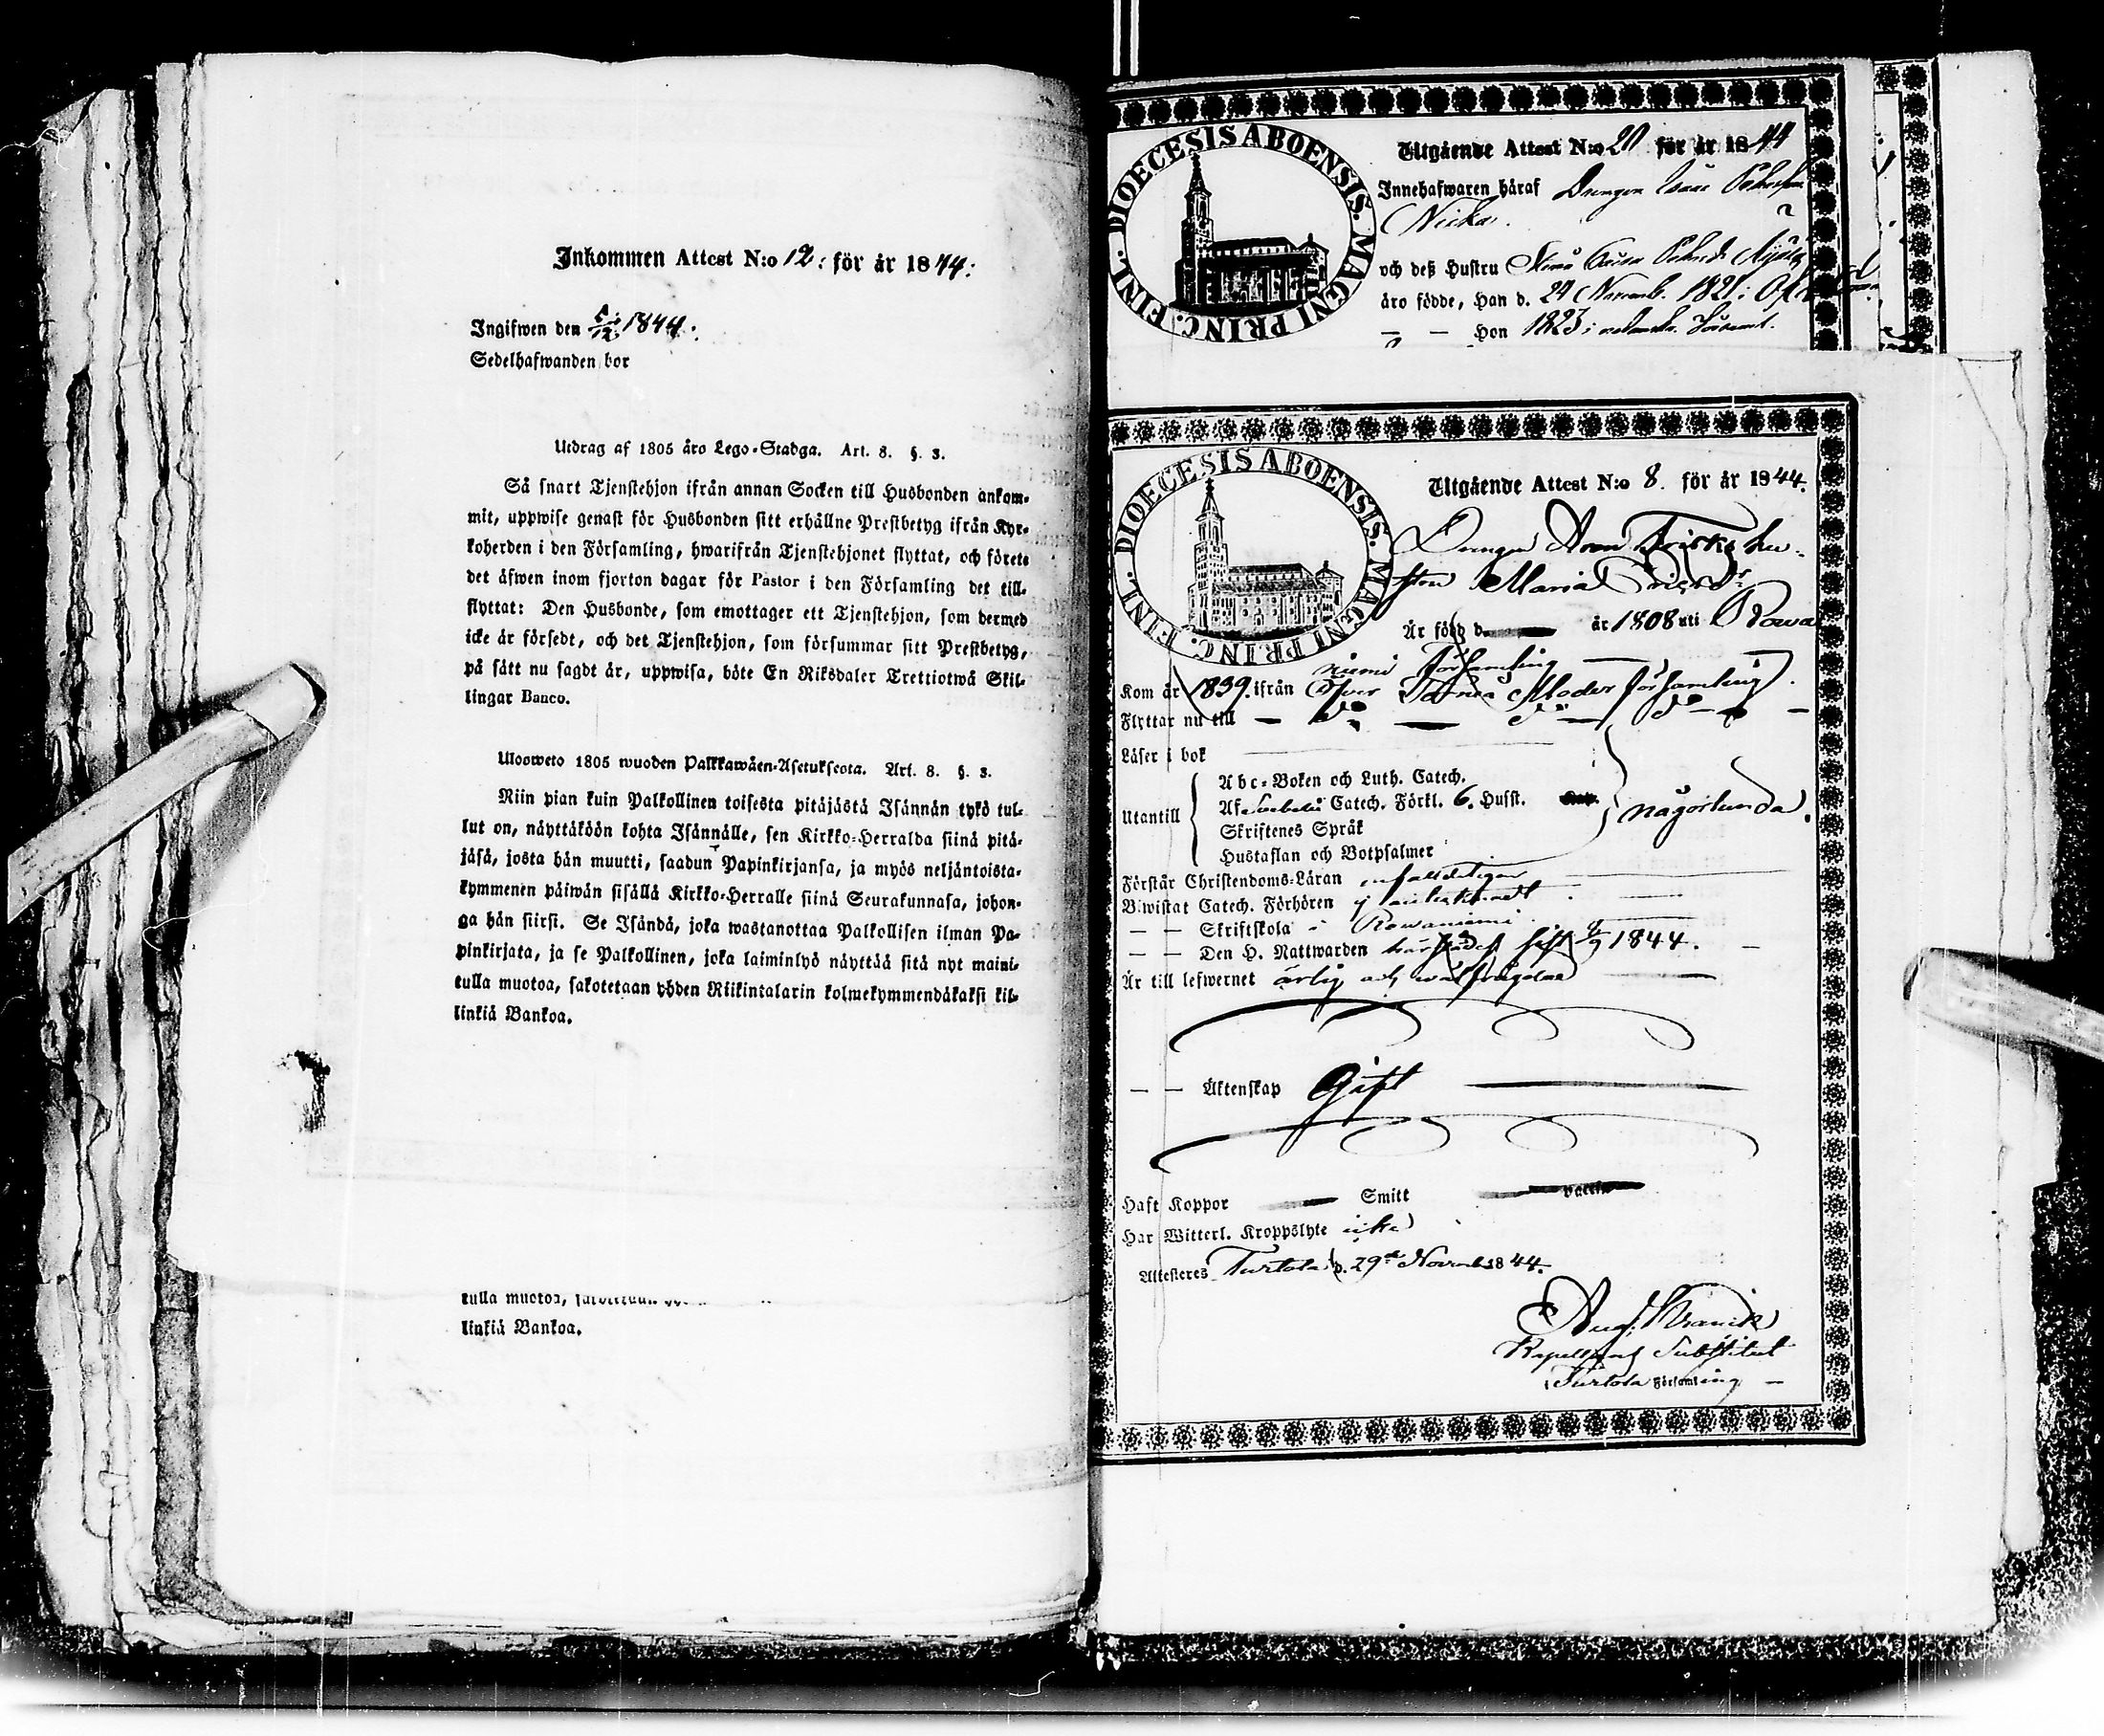 Inkommen Attest N:o 12: för år 1844:
Ingifwen den 1844:
Sedelhafwanden bor
Utdrag af 1805 åro Lego-Stadga. Art. 8. §. 3.
Så snart Tjenstehjon ifrån annan Socken till Husbonden ankom-
mit, uppwise genast för Husbonden sitt erhållne Prestbetyg ifrån Kyr-
koherden i den Församling, hwarifrån Tjenstehjonet flyttat, och förete
det äfwen inom fjorton dagar för Pastor i den Församling det till-
flyttat: Den Husbonde, som emottager ett Tjenstehjon, som dermed
icke är försedt, och det Tjenstehjon, som försummar sitt Prestbetyg,
på sätt nu sagdt är, uppwisa, böte En Riksdaler Trettiotwå Skil-
lingar Banco.
Ulosweto 1805 wuoden Palkkawäen-Asetuksesta. Art. 8. §. 3.
Niin pian kuin Palkollinen toisesta pitäjästä Isännän tykö tul-
lut on, näyttäköön kohta Isännälle, sen Kirkko-Herralda siinä pitä-
jäsä, josta hän muutti, saadun Papinkirjansa, ja myös neljäntoista-
kymmenen päiwän sisällä Kirkko-Herralle siinä Seurakunnasa, johon-
ga hän siirsi. Se Isändä, joka wastanottaa Palkollisen ilman Pa-
pinkirjata, ja se Palkollinen, joka laiminlyö näyttää sitä nyt maini-
tulla muotoa, sakotetaan yhden Riikintalarin kolmekymmendäkaksi kil-
linkiä Bankoa.
tulla muotoa,
linkiä Bankoa.
DIOECESIS ABOENSIS. MAGNI PRINC. FINL.
Utgående Attest N:o 20 för år 1844
Innehafwaren häraf Drengen Isaac
och deß Hustru
äro födde, Han d. 24 Novemb. 1821 i
— — Hon 1823 i
DIOECESIS ABOENSIS. MAGNI PRINC. FINL.
Utgående Attest N:o 8. för år 1844.
Drengen Aron Frisks hu-
stru Maria
Är född d. år 1808 uti Rowa
niemi församling
Kom år 1839. ifrån Öfver Torneå Moder församling.
Flyttar nu till — Do — Do — Do —
Läser i bok
Utantill
Abc-Boken och Luth. Catech.
Af Svebelii Catech. Förkl. 6. Husst.
Skriftenes Språk
Hustaflan och Botpsalmer
någorlunda.
Förstår Christendoms-Läran enfaldeligen
Biwistat Catech. Förhören
— — Skriftskola i Rowaniemi
— — Den H. Nattwarden härstädes sist 1844.
Är till lefwernet ärlig och wälfrägdad
— — Äktenskap Gift
Haft Koppor Smitt
Har Witterl. Kroppslyte icke
Attesteres Turtola d. 29de Novemb. 1844.
Kapellans Substitut
i Turtola Församling